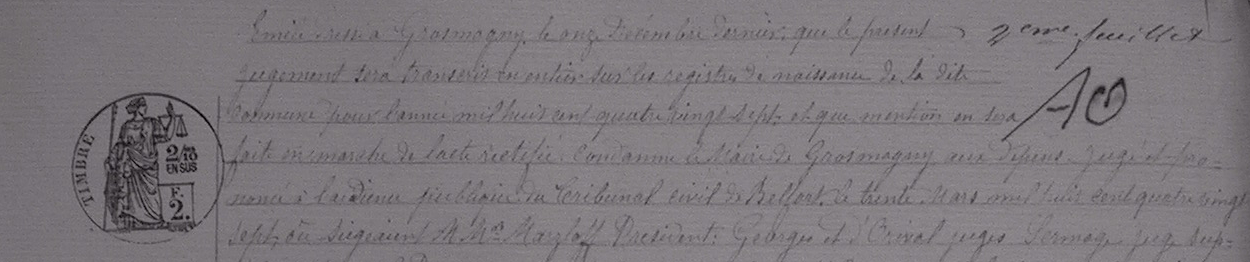 Emile dressé à Grosmagny, le onze Décembre dernier; que le présent
2eme feuillet
jugement sera transcrit en entier sur les registres de naissance de la dite
commune pour l'année mil huit cent quatre vingt sept, et que mention en sera
faite en marche de l'acte rectifié. Condamne le Maire de Grosmagny aux dépens. Jugé et pro-
noncé à l'audience publique du Tribunal civil de Belfort, le trente Mars mil huit cent quatre vingt
sept, où siégeaient M.Mrs Marzloff Président; Georges et d'Orival juges Sermage juge sup-
TIMBRE
2/10
EN SUS
F.
2.